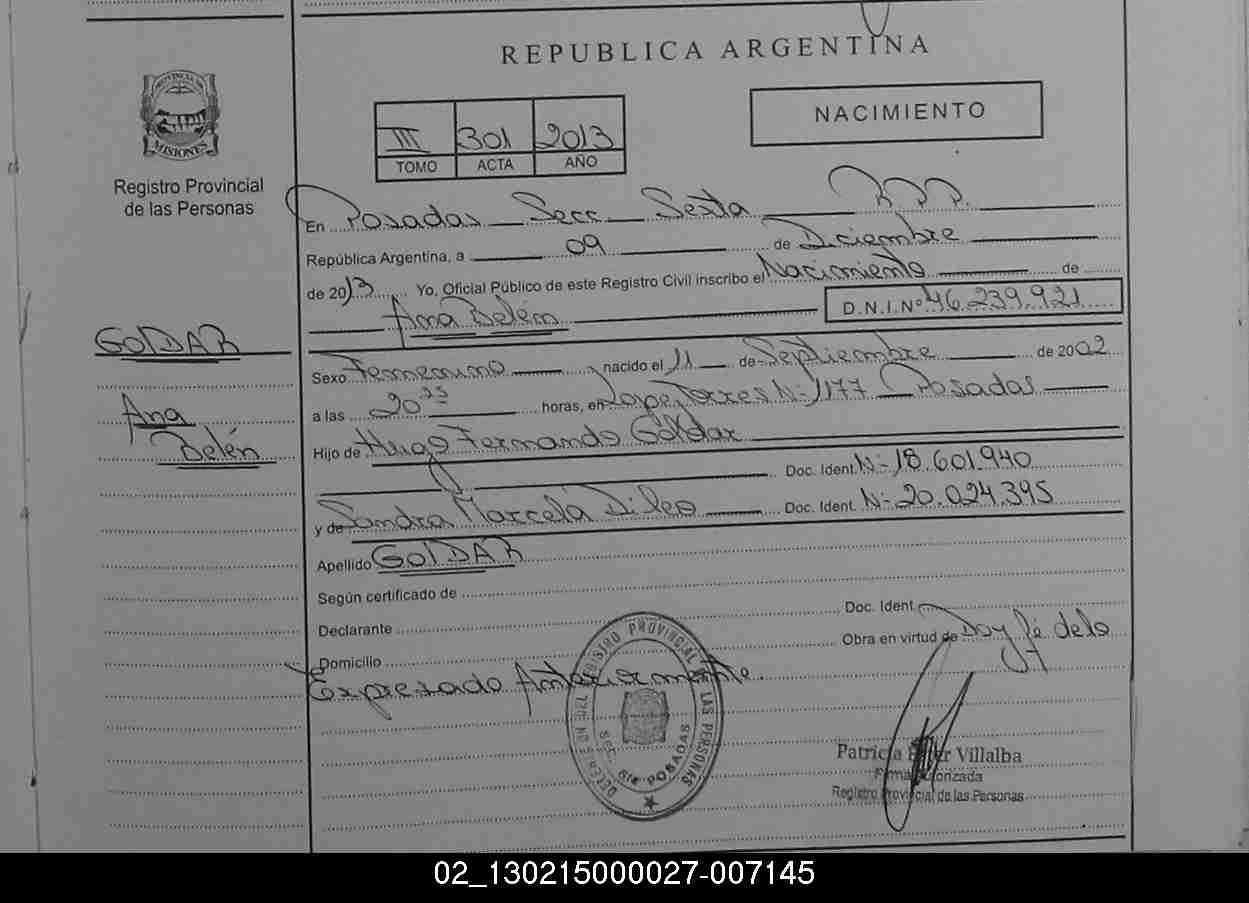 REPUBLICA ARGENTINA
PROVINCIA DE
MISIONES
Registro Provincial
de las Personas
NACIMIENTO
III 301 2013
TOMO ACTA AÑO
En Posadas Secc. Sexta R.P.P.
República Argentina, a 09 de Diciembre
de 2013 Yo, Oficial Público de este Registro Civil inscribo el Nacimiento de
Ana Belén D.N.I.Nº 46.239.921
GOLDAR
Ana
Belén
Sexo Femenino nacido el 11 de Septiembre de 2002
a las 20 25 horas, en Lope Torres N- 1177 Posadas
Hijo de Hugo Fernando Goldar
Doc. Ident. N- 18.601.940
y de Sandra Marcela Dileo Doc. Ident. N- 20.024.395
Apellido GOLDAR
Según certificado de
Declarante Doc. Ident.
Domicilio Obra en virtud de Doy fé de lo
Expresado Anteriormente.
DELEGACION DEL REGISTRO PROVINCIAL DE LAS PERSONAS
SEC. 6ta POSADAS
Patricia Villalba
Firma Autorizada
Registro Provincial de las Personas
02_130215000027-007145